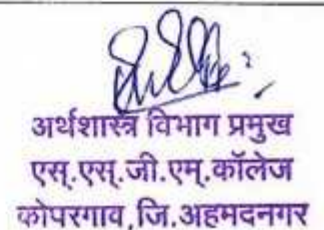 अर्थशास्त्र विभाग प्रमुख
एस्.एस्.जी.एम्.कॉलेज
कोपरगाव,जि.अहमदनगर